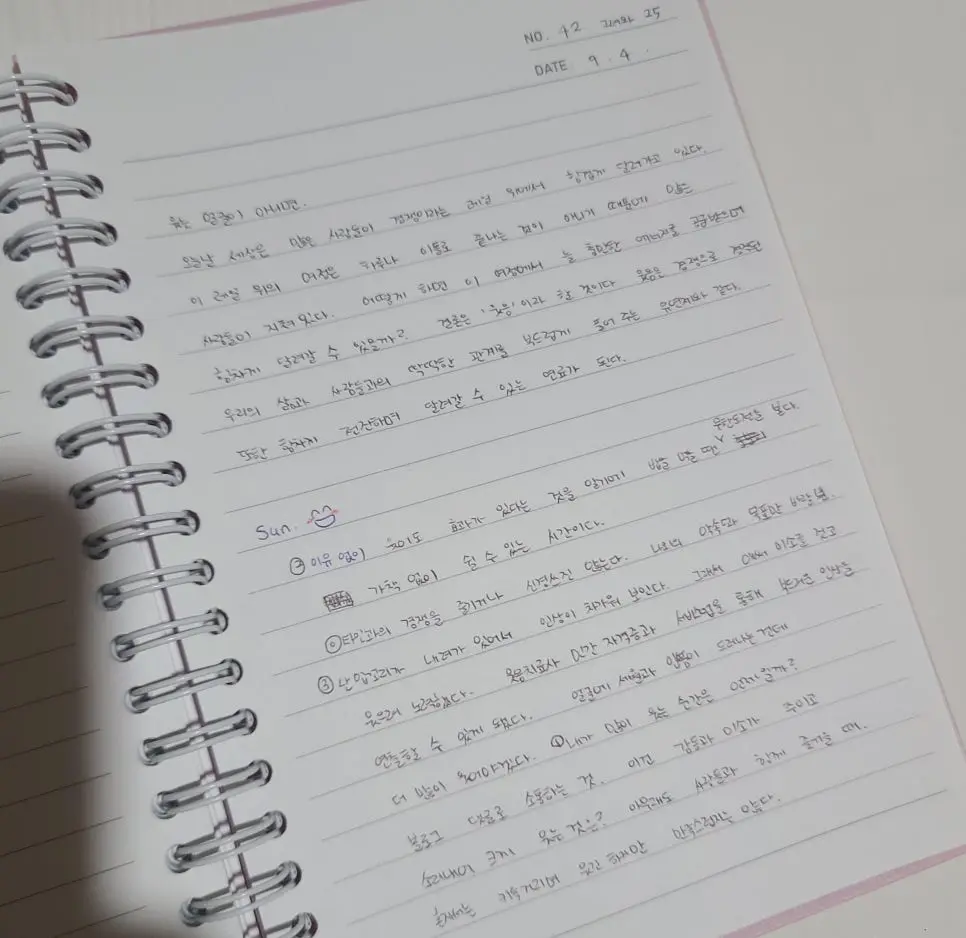 NO. 42 25
DATE 9. 4.
웃는 얼굴이 아네면.
오늘날 세상은 많은 사람들이 경쟁이라는 레일 위에서 힘겹게 달려가고 있다.
이 레일 위의 여정은 하루나 이틀로 끝나는 것이 아니기 때문에 많은
사람들이 지쳐있다. 어떻게 하면 이 여정에서 늘 충만한 에너지를 공급받으며
힘차게 달려갈 수 있을까? 결론은 '웃음'이라 할 것이다 웃음은 경쟁으로 경직된
우리의 삶과 사람들과의 딱딱한 관계를 부드럽게 풀어 주는 윤면지와 같다.
또한 힘차게 전진하며 달려갈 수 있는 연료가 된다.
Sun.
무한도전을
② 이유 없이 웃어도 효과가 있다는 것을 알기에 밥을 먹을 땐 ∨ 본다.
가책 없이 쉴 수 있는 시간이다.
◎ 타인과의 경쟁을 즐기거나 신경쓰진 않는다. 나와의 약속과 목표만 바라봄.
③ 난 입꼬리가 내려가 있어서 인상이 차가워 보인다. 그래서 애써 미소를 짓고
웃으려 노력했다. 웃음치료사 민간 자격증과 셔비법을 통해 부드러운 인상을
연출할 수 있게 됐다. 얼굴에 세월과 인품이 드러나는건데
더 많이 웃어야겠다. ① 내가 많이 웃는 순간은 언제일까?
블로그 댓글로 소통하는 것. 이건 감동과 미소가 주이고
소리내어 크게 웃는 것은? 아무래도 사람들과 함께 즐기를 때.
혼자서는 키득거리며 웃긴 하지만 만족스럽지는 않다.